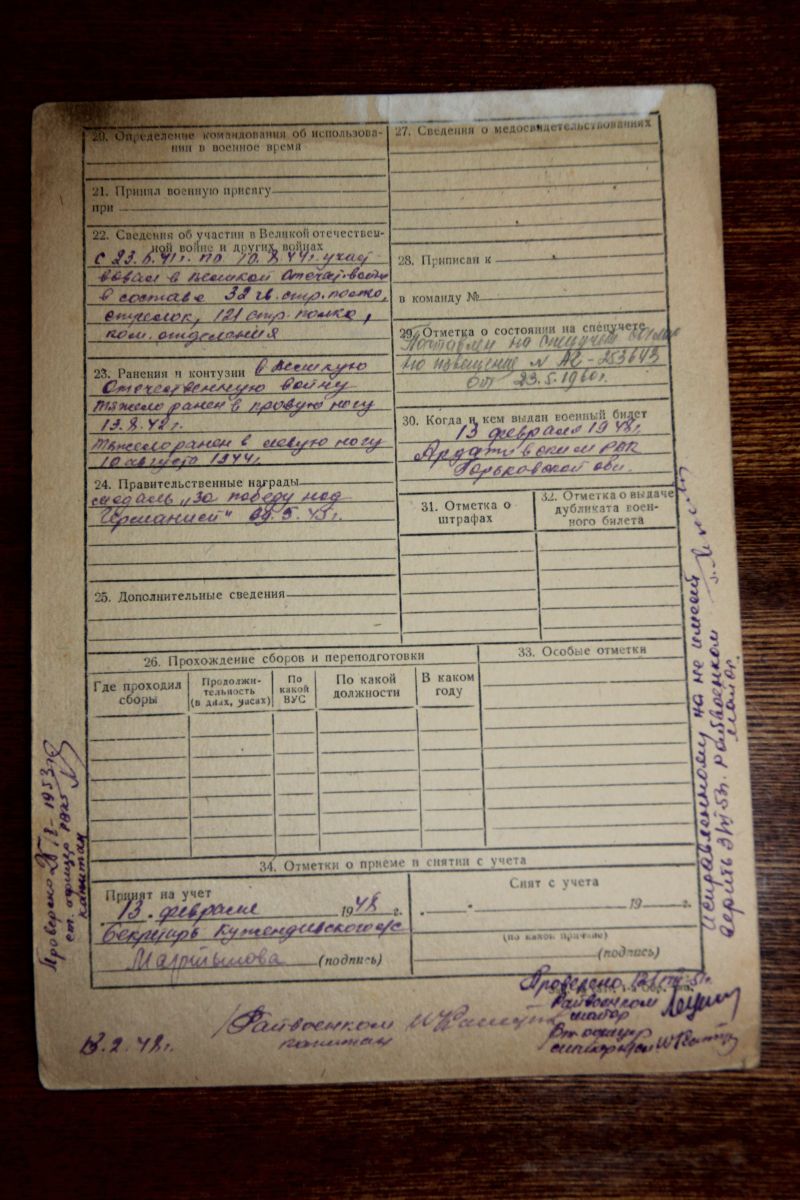 20. Определение командования об использова-
нии в военное время
21. Принял военную присягу
при
22. Сведения об участии в Великой отечествен-
ной войне и других войнах
С 23.6.41г. по 10.8.44г. участ-
вовал в Великой Отечест. войне
в составе 32 гв. стр. полка,
стрелок, 121 стр. полка,
ком. отделения
23. Ранения и контузии в Великую
Отечественную войну
тяжело ранен в правую ногу
13.8.42г.
тяжело ранен в левую ногу
10 августа 1944г.
24. Правительственные награды
медаль „За победу над
Германией" 09.5.45г.
25. Дополнительные сведения
26. Прохождение сборов и переподготовки
Где проходил
сборы
Продолжи-
тельность
(в днях, часах)
По
какой
ВУС
По какой
должности
В каком
году
27. Сведения о медосвидетельствованиях
28. Приписан к
в команду №
29. Отметка о состоянии на спецучете
Поставлен на спецучет
по извещению №
от 23.5.1960г.
30. Когда и кем выдан военный билет
13 февраля 1948г.
Ардатовским РВК
Горьковской обл.
31. Отметка о
штрафах
32. Отметка о выдаче
дубликата воен-
ного билета
33. Особые отметки
34. Отметки о приеме и снятии с учета
Принят на учет
13. февраля 1948 г.
Секретарь с/с
(подпись)
Снят с учета
19 г.
(по какой причине)
(подпись)
13.2.48г.
Райвоенком
капитан
Проверено
Райвоенком
майор
Проверено 1953г.
ст. офицер
капитан
Исправленному на не имеей
верить 53г. Райвоенком
майор.